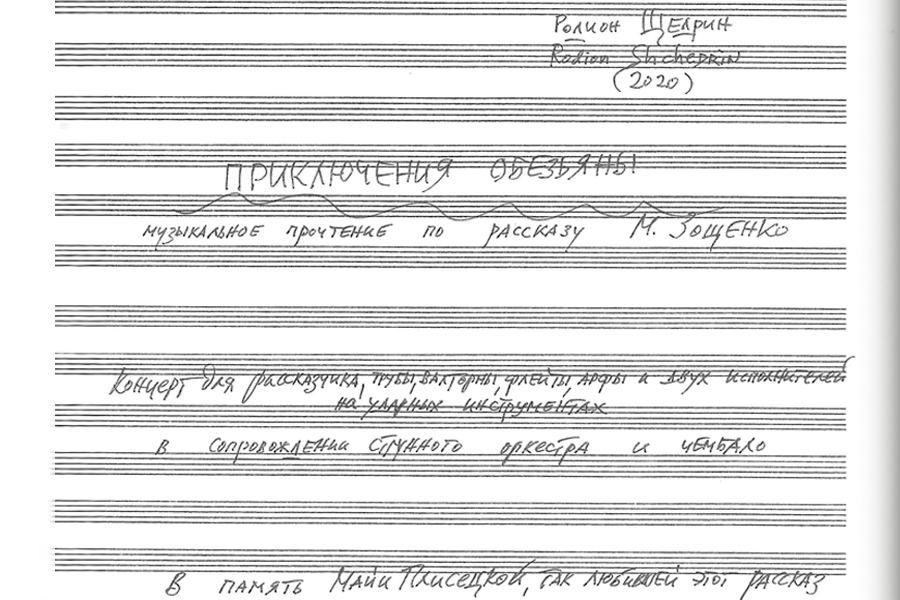 Родион Щедрин
Rodion Shchedrin
(2020)
ПРИКЛЮЧЕНИЯ ОБЕЗЬЯНЫ
музыкальное прочтение по рассказу М. Зощенко
Концерт для рассказчика, трубы, валторны, флейты, арфы и двух исполнителей
на ударных инструментах
в сопровождении струнного оркестра и чембало
В память Майи Плисецкой, так любившей этот рассказ